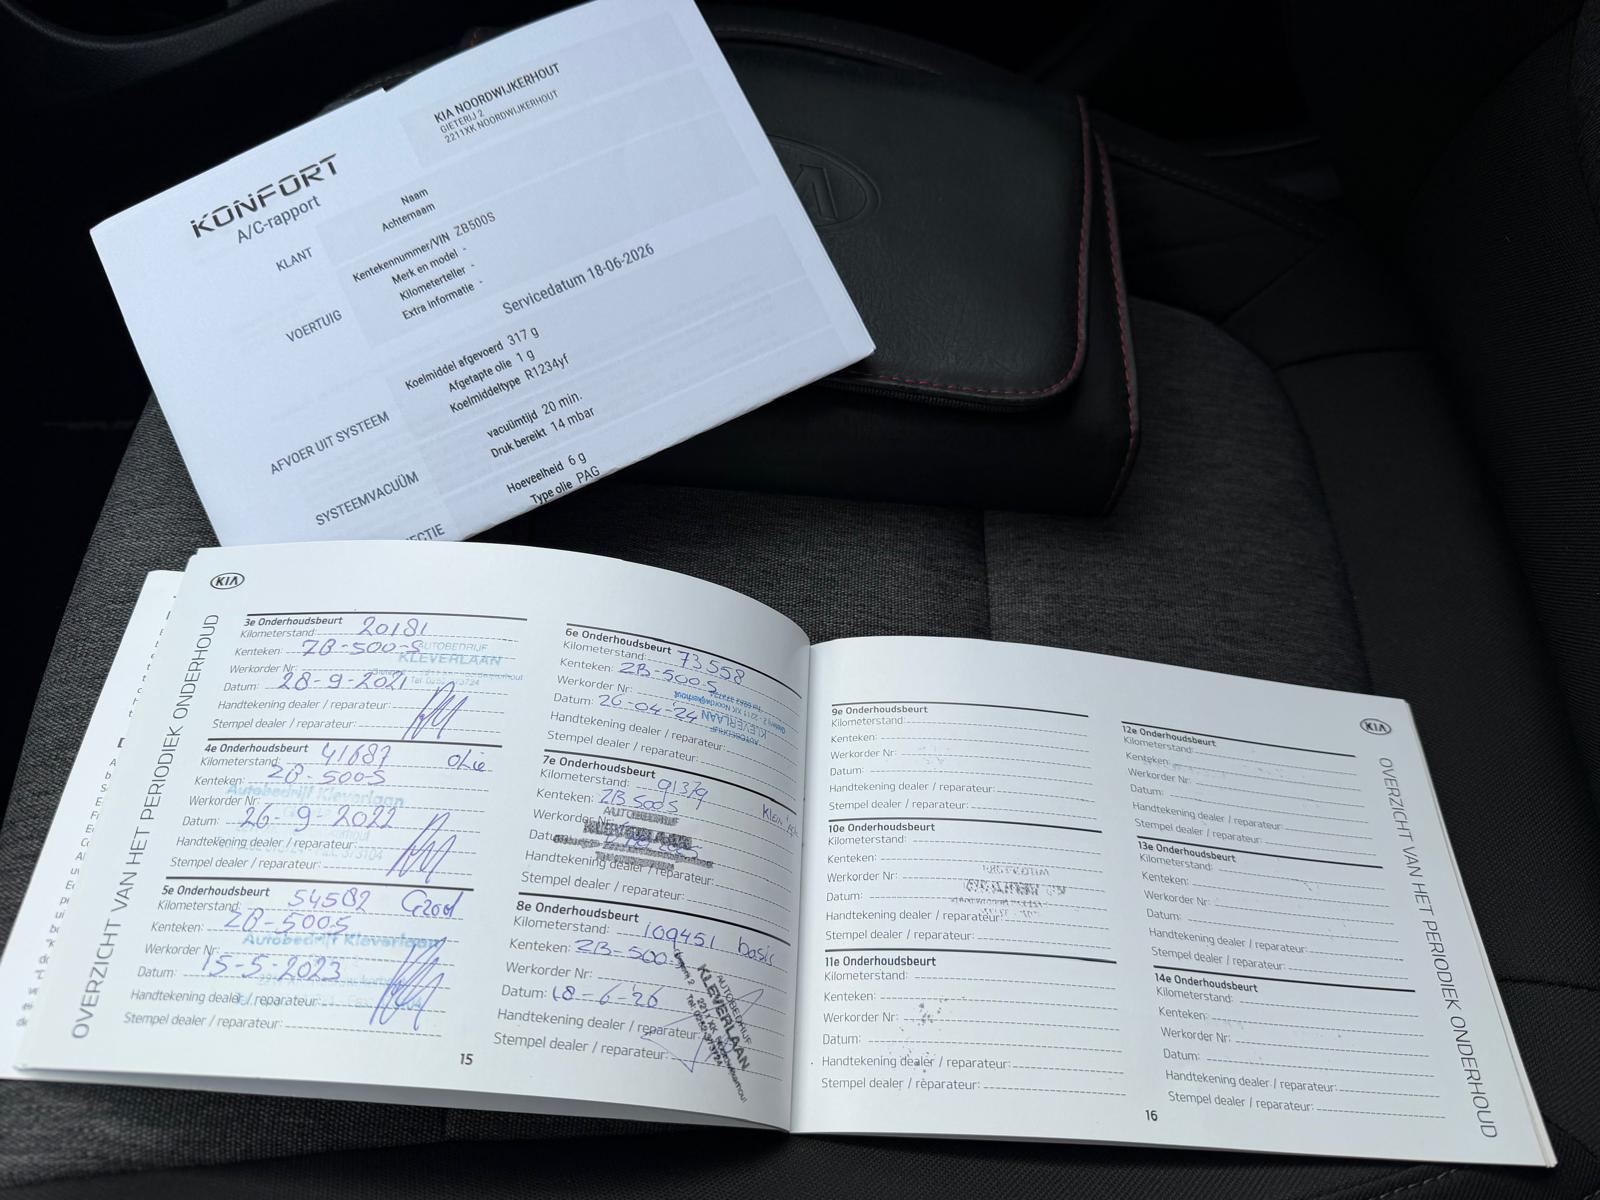 KONFORT
A/C-rapport
KIA NOORDWIJKERHOUT
GIETERIJ 2
2211XK NOORDWIJKERHOUT
KLANT
Naam
Achternaam
VOERTUIG
Kentekennummer/VIN ZB500S
Merk en model -
Kilometerteller -
Extra informatie -
Servicedatum 18-06-2026
AFVOER UIT SYSTEEM
Koelmiddel afgevoerd 317 g
Afgetapte olie 1 g
Koelmiddeltype R1234yf
SYSTEEMVACUÜM
vacuümtijd 20 min.
Druk bereikt 14 mbar
Hoeveelheid 6 g
Type olie PAG
KIA
OVERZICHT VAN HET PERIODIEK ONDERHOUD
3e Onderhoudsbeurt
Kilometerstand: 20181
Kenteken: ZB-500-S
Werkorder Nr:
AUTOBEDRIJF
KLEVERLAAN
Datum: 28-9-2021
Handtekening dealer / reparateur:
Stempel dealer / reparateur:
4e Onderhoudsbeurt
Kilometerstand: 41687 olie
Kenteken: ZB-500-S
Autobedrijf Kleverlaan
Werkorder Nr:
Datum: 26-9-2022
Handtekening dealer / reparateur:
Stempel dealer / reparateur:
5e Onderhoudsbeurt
Kilometerstand: 54582 Groot
Kenteken: ZB-500-S
Autobedrijf Kleverlaan
Werkorder Nr:
Datum: 15-5-2023
Handtekening dealer / reparateur:
Stempel dealer / reparateur:
6e Onderhoudsbeurt
Kilometerstand: 73558
Kenteken: ZB-500-S
Werkorder Nr:
Datum: 26-04-24
AUTOBEDRIJF
KLEVERLAAN
Handtekening dealer / reparateur:
Stempel dealer / reparateur:
7e Onderhoudsbeurt
Kilometerstand: 91379
Kenteken: ZB500S
Werkorder Nr:
AUTOBEDRIJF
Datum:
Handtekening dealer / reparateur:
Stempel dealer / reparateur:
8e Onderhoudsbeurt
Kilometerstand: 109451 basis
Kenteken: ZB-500-
Werkorder Nr:
Datum: 18-6-26
Handtekening dealer / reparateur:
Stempel dealer / reparateur:
AUTOBEDRIJF
KLEVERLAAN
15
9e Onderhoudsbeurt
Kilometerstand:
Kenteken:
Werkorder Nr:
Datum:
Handtekening dealer / reparateur:
Stempel dealer / reparateur:
10e Onderhoudsbeurt
Kilometerstand:
Kenteken:
Werkorder Nr:
Datum:
Handtekening dealer / reparateur:
Stempel dealer / reparateur:
11e Onderhoudsbeurt
Kilometerstand:
Kenteken:
Werkorder Nr:
Datum:
Handtekening dealer / reparateur:
Stempel dealer / reparateur:
12e Onderhoudsbeurt
Kilometerstand:
Kenteken:
Werkorder Nr:
Datum:
Handtekening dealer / reparateur:
Stempel dealer / reparateur:
13e Onderhoudsbeurt
Kilometerstand:
Kenteken:
Werkorder Nr:
Datum:
Handtekening dealer / reparateur:
Stempel dealer / reparateur:
14e Onderhoudsbeurt
Kilometerstand:
Kenteken:
Werkorder Nr:
Datum:
Handtekening dealer / reparateur:
Stempel dealer / reparateur:
KIA
OVERZICHT VAN HET PERIODIEK ONDERHOUD
16